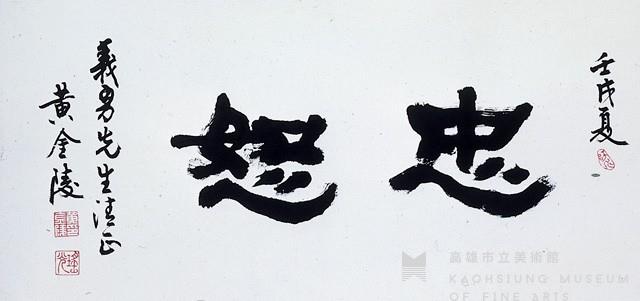 壬戌夏
忠恕
義勇先生清正
黃金陵
高雄市立美術館
KAOHSIUNG MUSEUM
OF FINE ARTS